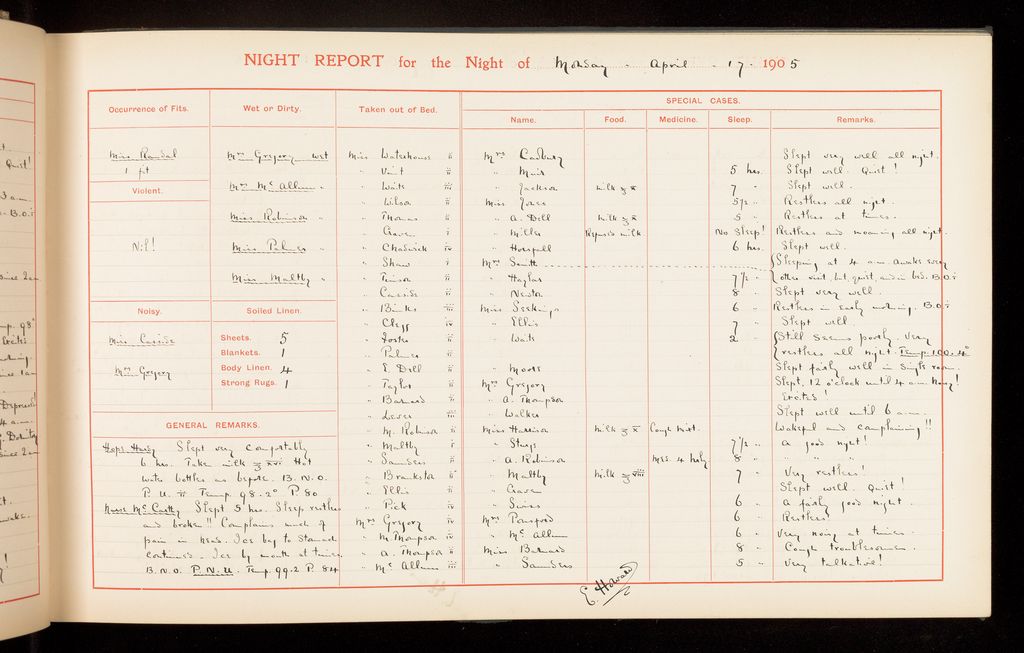 NIGHT REPORT for the Night of Monday . April . 17 . 1905
Occurrence of Fits.
Miss Randal
1 fit
Violent.
Nil!
Noisy.
Miss Cassidi
Mrs Gregory
Wet or Dirty.
Mrs Gregory wet
Mrs McAllum "
Miss Robinson "
Miss Palmer "
Miss Maltby "
Soiled Linen.
Sheets. 5
Blankets. 1
Body Linen. 4
Strong Rugs. 1
GENERAL REMARKS.
Slept very comfortably
6 hrs. Takes milk ℥ xvi Hot
water bottles as before. B.N.O.
P.U. ii Temp. 98.2° P 80
Nurse McCarthy Slept 5 hrs. Sleep restless
and broken!! Complains much of
pain in head. Ice bag to Stomach
continued. Ice by mouth at times
B.N.O. P.N.U. Temp. 99.2 P. 84
Taken out of Bed.
Miss Waterhouse ii
" ii
" Waits iii
" Wilson ii
" Thomas ii
" Craven i
" Chadwick iv
" Shaw i
" ii
" Cassidi ii
" Binks iii
" Clegg iv
" Foster ii
" Palmer ii
" E. Dell ii
" Taylor ii
" Barnard ii
" Lever iii
" M. Robinson ii
" Maltby i
" Saunders ii
" Brankston ii
" Ellis ii
" Pick iv
Mrs Gregory iv
" M. Thompson iv
" A. Thompson ii
" McAllum iii
SPECIAL CASES.
Name. Food. Medicine. Sleep. Remarks.
Mrs Cadbury Slept very well all night.
" Muir 5 hrs. Slept well. Quiet!
" Jackson milk ℥ x 7 " Slept well.
Miss Jones 5½ " Restless all night.
" A. Dell milk ℥ x 5 " Restless at times.
" Miller Refused milk No Sleep! Restless and moaning all night.
" Horsfall 6 hrs. Slept well.
Mrs Smith Sleeping at 4 a.m. Awake every
" Haylar 7½ " other visit, but quiet, and in bed. B.O. i
" Newton 8 " Slept very well.
Miss Seekings 6 " Restless in early morning. B.O. i
" Ellis 7 " Slept well.
" Waits 2 " Still seems poorly. Very
restless all night. Temp. 100.4°
" Moors Slept fairly well in Single room.
Mrs Gregory Slept 12 o'clock until 4 a.m. Noisy!
" A. Thompson Excited!
" Walker Slept well until 6 a.m.
Miss Harrison milk ℥ x Cough mixt. Wakeful and complaining!!
" 7½ " A good night!
" A. Robinson Mist. 4 hrly 8 " " " "
" Maltby milk ℥ viii 7 " Very restless!
" Craven Slept well. Quiet!
" Swiss 6 " A fairly good night.
Mrs Pansford 6 " Restless!
" McAllum 6 " Very noisy at times.
Miss Barnard 8 " Cough troublesome.
" Saunders 5 " Very talkative!
E. Howard